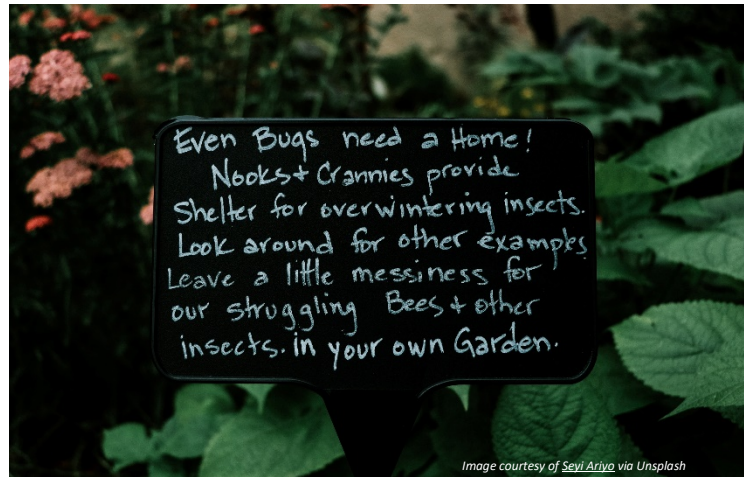 Even Bugs need a Home!
Nooks + Crannies provide
Shelter for overwintering insects.
Look around for other examples
Leave a little messiness for
our struggling Bees + other
insects. in your own Garden.
Image courtesy of Seyi Ariyo via Unsplash